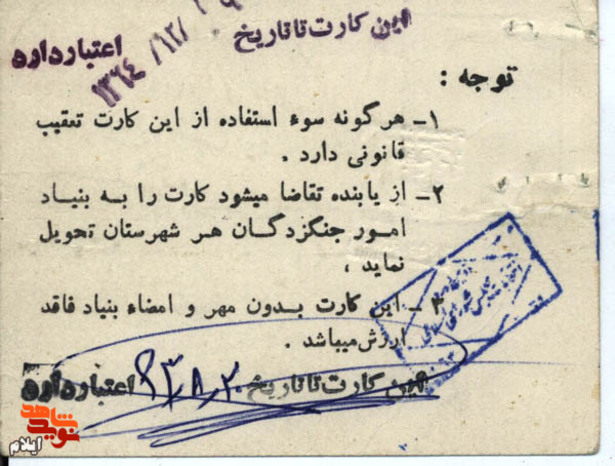 این کارت تا تاریخ ۱۳۶۴/۱۲/ اعتبار دارد
توجه :
۱- هرگونه سوء استفاده از این کارت تعقیب
قانونی دارد .
۲- از یابنده تقاضا میشود کارت را به بنیاد
امور جنگزدگان هر شهرستان تحویل
نماید ،
۳- این کارت بدون مهر و امضاء بنیاد فاقد
ارزش میباشد .
این کارت تا تاریخ اعتبار دارد
نوید شاهد
ایلام